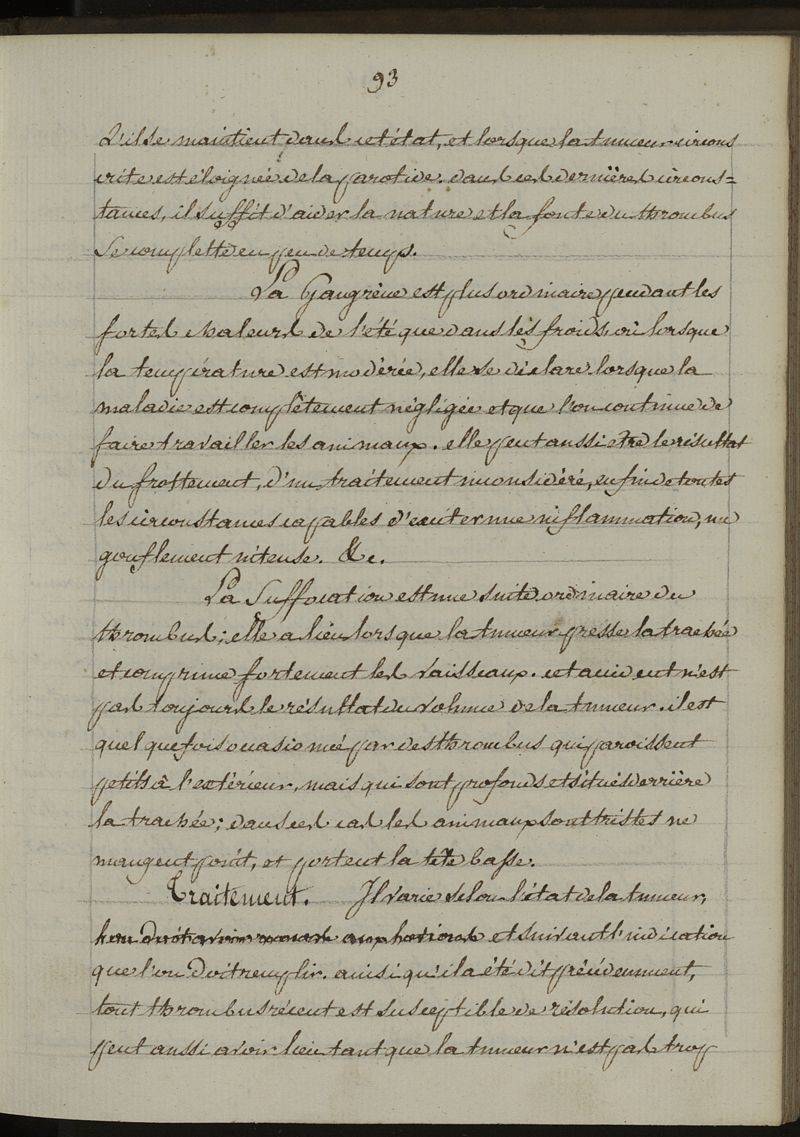 93
S'il se maintient dans cet état, et lorsque la tumeur circons
crite est éloignée de la parotide. dans ces dernières circons=
tances, il suffit d'aider la nature et la fonte du thrombus
se complette en peu de temps.
La Gangrène est plus ordinaire pendant les
fortes chaleurs de l'été que dans les froids, où lorsque
la température est modérée, elle se déclare lorsque la
maladie est complètement négligée et que l'on continue de
faire travailler les animaux. elle peut aussi etre le résultat
du frottement, d'un traitement inconsidéré, enfin de toutes
les circonstances capables d'exciter une inflammation, un
gonflement intense. &c.
La Suffocation est une suite ordinaire du
thrombus; elle a lieu lorsque la tumeur presse la trachée
et comprime fortement les vaisseaux. cet accident n'est
pas toujours le résultat du volume de la tumeur. il est
quelquefois occasionné par des thrombus qui paroissent
petits à l'extérieur, mais qui sont profonds et situés derrière
la trachée; dans ces cas les animaux sont tristes ne
mangent point, et portent la tête basse.
Traitement. Il varie selon l'état de la tumeur,
et suivant l'indication
que l'on doit remplir. ainsi qu'il a été dit précédemment,
tout thrombus récent est susceptible de résolution, qui
peut aussi avoir lieu tant que la tumeur n'est pas trop